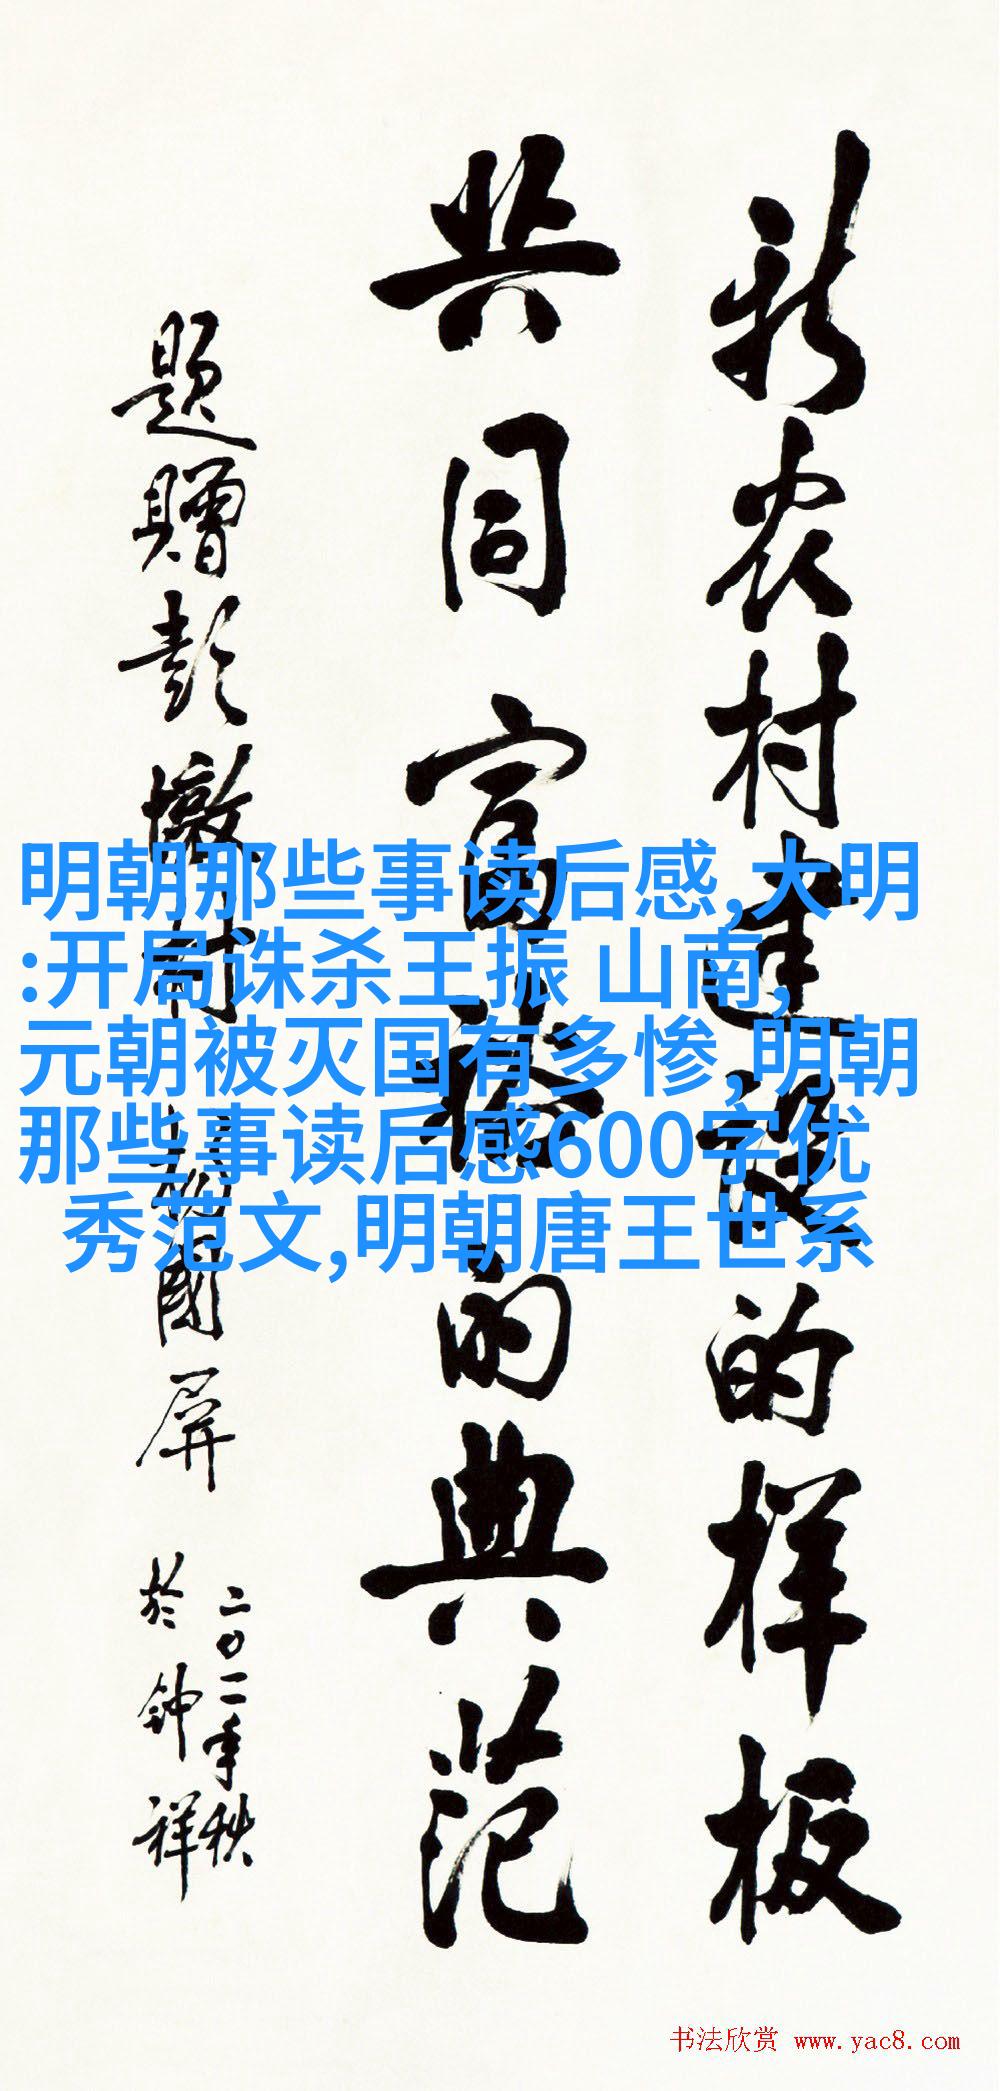 新农村建设的样板
共同富裕的典范
题赠彭墩村
国屏
二〇一一年秋
於钟祥
明朝那些事读后感,大明
:开局诛杀王振 山南,
元朝被灭国有多惨,明朝
那些事读后感600字优
秀范文,明朝唐王世系
书法欣赏 www.yac8.com